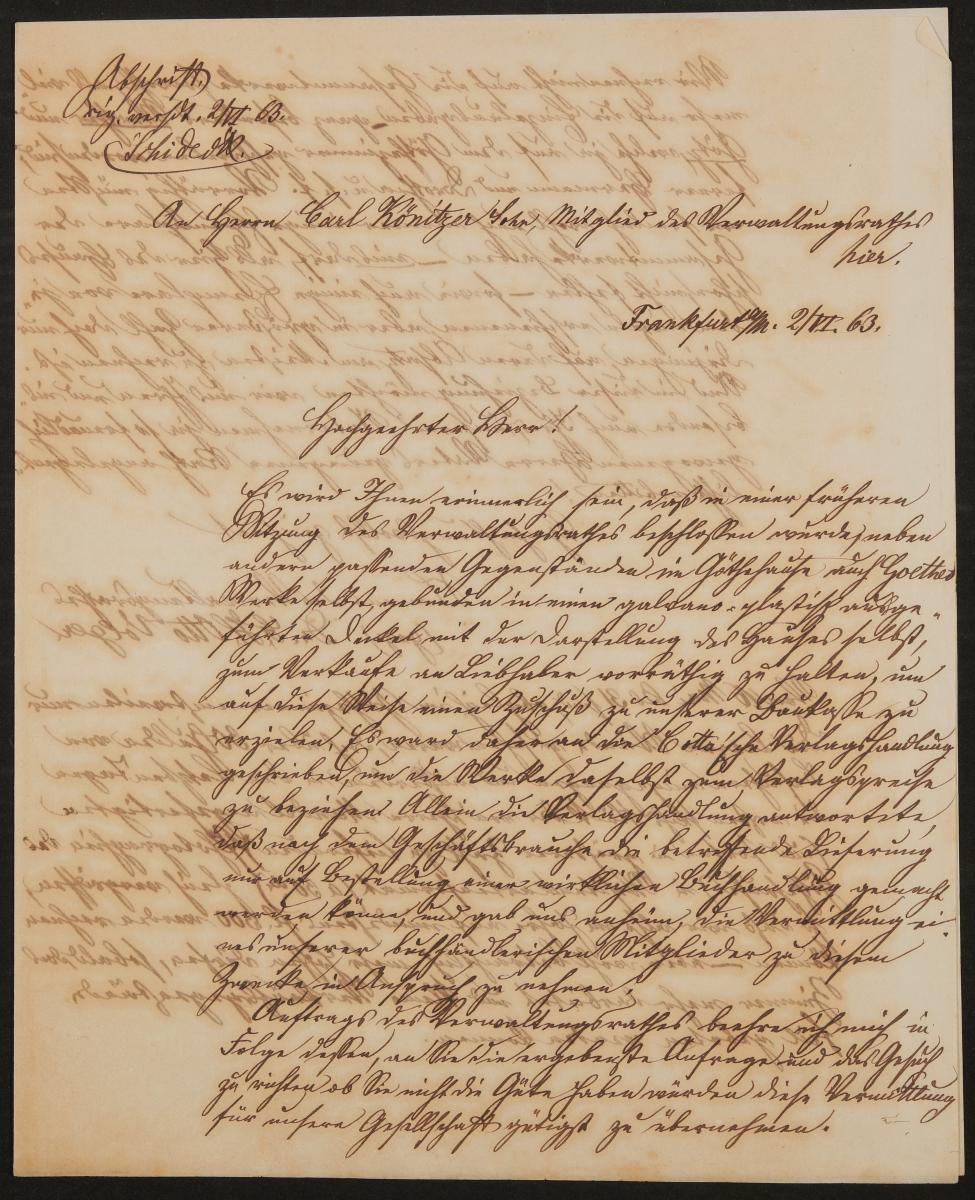 Abschrift.
rig. versdt. 2/VI 63.
Schideck.
An Herrn Carl Könitzer Sohn, Mitglied des Verwaltungsrathes
hier.
Frankfurt a/M. 2/VI. 63.
Hochgeehrter Herr!
Es wird Ihnen erinnerlich sein, daß in einer früheren
Sitzung des Verwaltungsrathes beschlossen wurde, neben
andern passenden Gegenständen im Göthehause auch Goethes
Werke selbst, gebunden in einen galvano-plastisch ausge-
führten Deckel mit der Darstellung des Hauses selbst,
zum Verkaufe an Liebhaber vorräthig zu halten, um
auf diese Weise einen Zuschuß zu unserer Baukasse zu
erzielen. Es ward daher an die Cotta'sche Verlagshandlung
geschrieben, um die Werke daselbst zum Verlagspreise
zu beziehen. Allein die Verlagshandlung antwortete,
daß nach dem Geschäftsbrauche die betreffende Lieferung
nur auf Bestellung einer wirklichen Buchhandlung gemacht
werden könne, und gab uns anheim, die Vermittlung ei-
nes unserer buchhändlerischen Mitglieder zu diesem
Zwecke in Anspruch zu nehmen.
Auftrags des Verwaltungsrathes beehre ich mich in
Folge dessen, an Sie die ergebenste Anfrage und das Gesuch
zu richten, ob Sie nicht die Güte haben würden diese Vermittlung
für unsere Gesellschaft gütigst zu übernehmen.